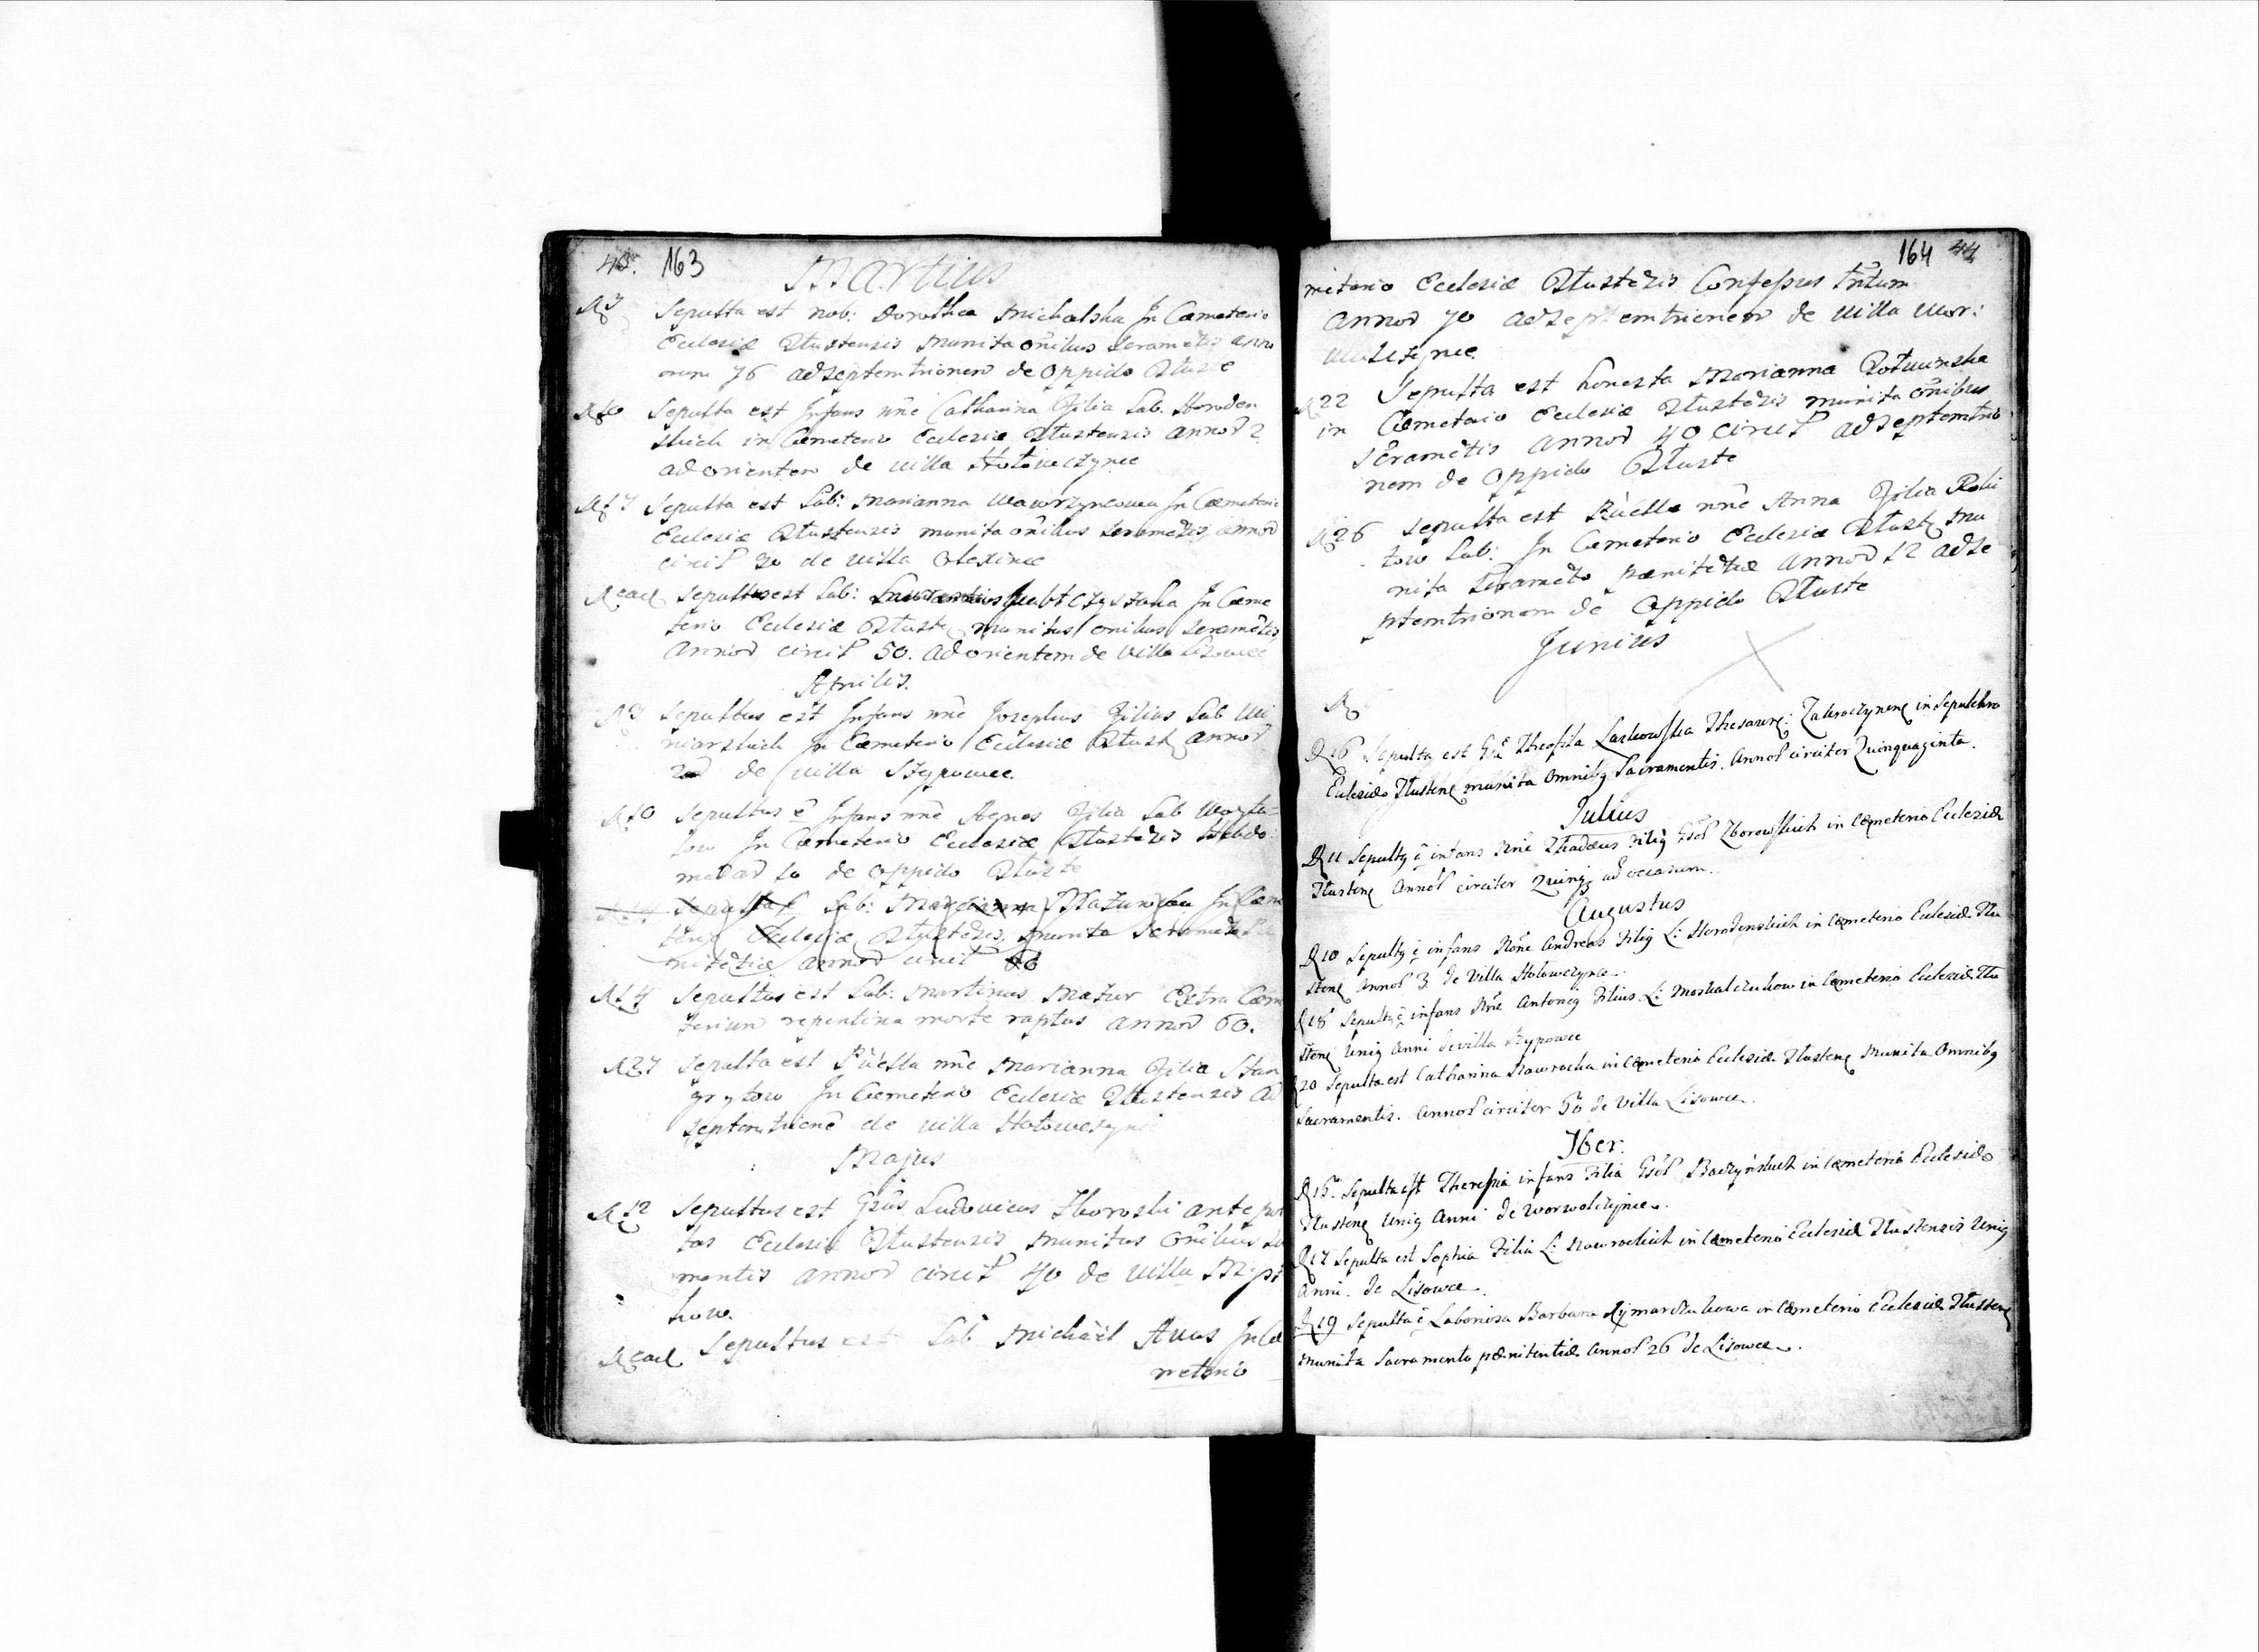 43. 163
Martius
D 3 Sepulta est Nob: Dorothea Michalska In Cæmeterio
Ecclesiæ Tłustensis Munita oñibus Scramẽtis anno
rum 76 ad septemtrionem de Oppido Tłuste
D 10 Sepulta est Infans nñe Catharina Filia Lab. Horoden
skich in Cæmeterio Ecclesiæ Tłustensis annor 2
ad orientem de villa Hołowczynce
D 17 Sepulta est Lab: Marianna Wawrzyncowa In Cæmeterio
Ecclesiæ Tłustensis munita oñibus Scramẽtis annor
circit 30 de villa Olexince
D ead Sepultus est Lab: Czystoha In Cæme
terio Ecclesiæ Tłust munitus oñibus Scramẽtis
Annor circit 50. ad orientem de Villa Lisowce
Aprilis.
D 3 Sepultus est Infans nñe Josephus Filius Lab Wi
niarskich In Cæmeterio Ecclesiæ Tłust annor
de villa Szypowce.
D 10 Sepultus ẽ Infans nñe Agnes Filia Lab Woyta-
sow In Cæmeterio Ecclesiæ Tłustẽsis Hebdo:
madar 10 de Oppido Tłuste
Sepulta ẽ Lab: Mazurowa In Cæm
terio Ecclesiæ Tłustẽsis munita Scramẽto Pæ
nitẽtiæ annor circit
D 14 Sepultus est Lab: Martinus Mazur Extra Cæm
terium repentina morte raptus annor 60.
D 27 Sepulta est Puella nñe Marianna Filia Stan
grytow In Cæmeterio Ecclesiæ Tłustensis ad
septemtrionẽ de villa Hołowczynce
Majus
D 12 Sepultus est Gsus Ludovicus Zboroski ante por
tas Ecclesiæ Tłustensis munitus oñibus Sa
mentis annor circit 40 de villa
how.
D ead Sepultus est Lab Michaël Huus In Cæ
meterio
164 44
meterio Ecclesiæ Tłustẽsis Confessus tñtum
Annor 70 ad septemtrionem de Villa Wor:
wulinynce
D 22 Sepulta est honesta Marianna Rotwinska
in Cæmeterio Ecclesiæ Tłustẽsis munita oñibus
Scramẽtis Annor 40 circit ad septemtrio
nem de Oppido Tłuste
D 26 Sepulta est Puella nñe Anna Filia Robi
tow Lab: In Cæmeterio Ecclesiæ Tłust mu
nita Scramẽto pænitẽtiæ Annor 12 ad se
ptemtrionem de Oppido Tłuste
Junius
D
D 16 Sepulta est Theofila Laskowska Thesaure: Zakroczynens in Sepulchro
Ecclesiæ Tłustens munita Omnibg Sacramentis. Annor circiter Quinquaginta.
Julius
D 11 Sepultg ẽ infans Nñe Thadæus Filig Gsor Zborowskich in Cæmeterio Ecclesiæ
Tłustens Annor circiter Quinqz ad occasum.
Augustus
D 10 Sepultg ẽ infans Nõne Andreas Filig L: Horodenskich in Cæmeterio Ecclesiæ Tłu
stens Annor 3 de Villa Hołowczynce.
D 18 Sepultg ẽ infans Nñe Antonig Filius L: Moskalczukow in Cæmeterio Ecclesiæ Tłu
stens Unig Anni de villa Szypowce
D 20 Sepulta est Catharina Nawrocka in Cæmeterio Ecclesiæ Tłustens Munita Omnibg
Sacramentis. Annor circiter 50 de Villa Lisowce.
7ber.
D 15. Sepulta est Theresia infans Filia Gsor Baczyńskich in Cæmeterio Ecclesiæ
Tłustens Unig Anni de Worwolinynce.
D 17 Sepulta est Sophia Filia L: Nawrockich in Cæmeterio Ecclesiæ Tłustensis Unig
Anni. de Lisowce.
D 19 Sepulta ẽ Laboriosa Barbara Rymarczukowa in Cæmeterio Ecclesiæ Tłustens
Munita Sacramento pænitentiæ Annor 26 de Lisowce.